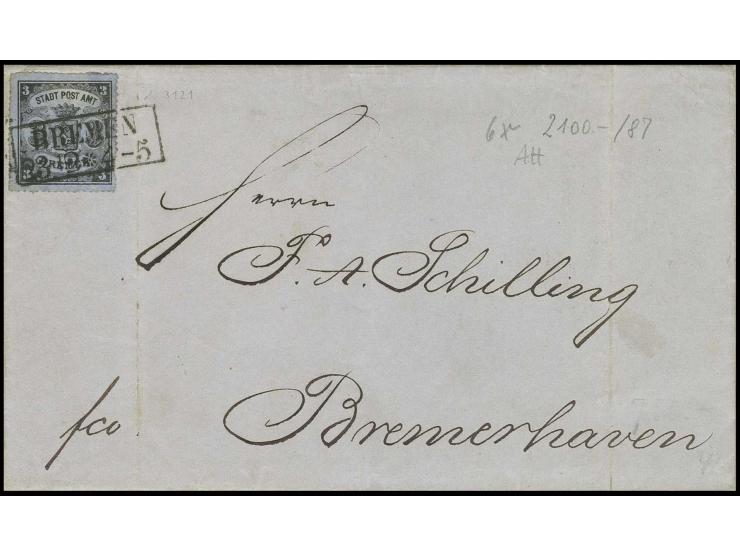 3 3
STADT POST AMT
BREMEN
BREMEN
3 3
-5
3121
6x 2100.-/87
Att
Herrn
F. A. Schilling
fco Bremerhaven